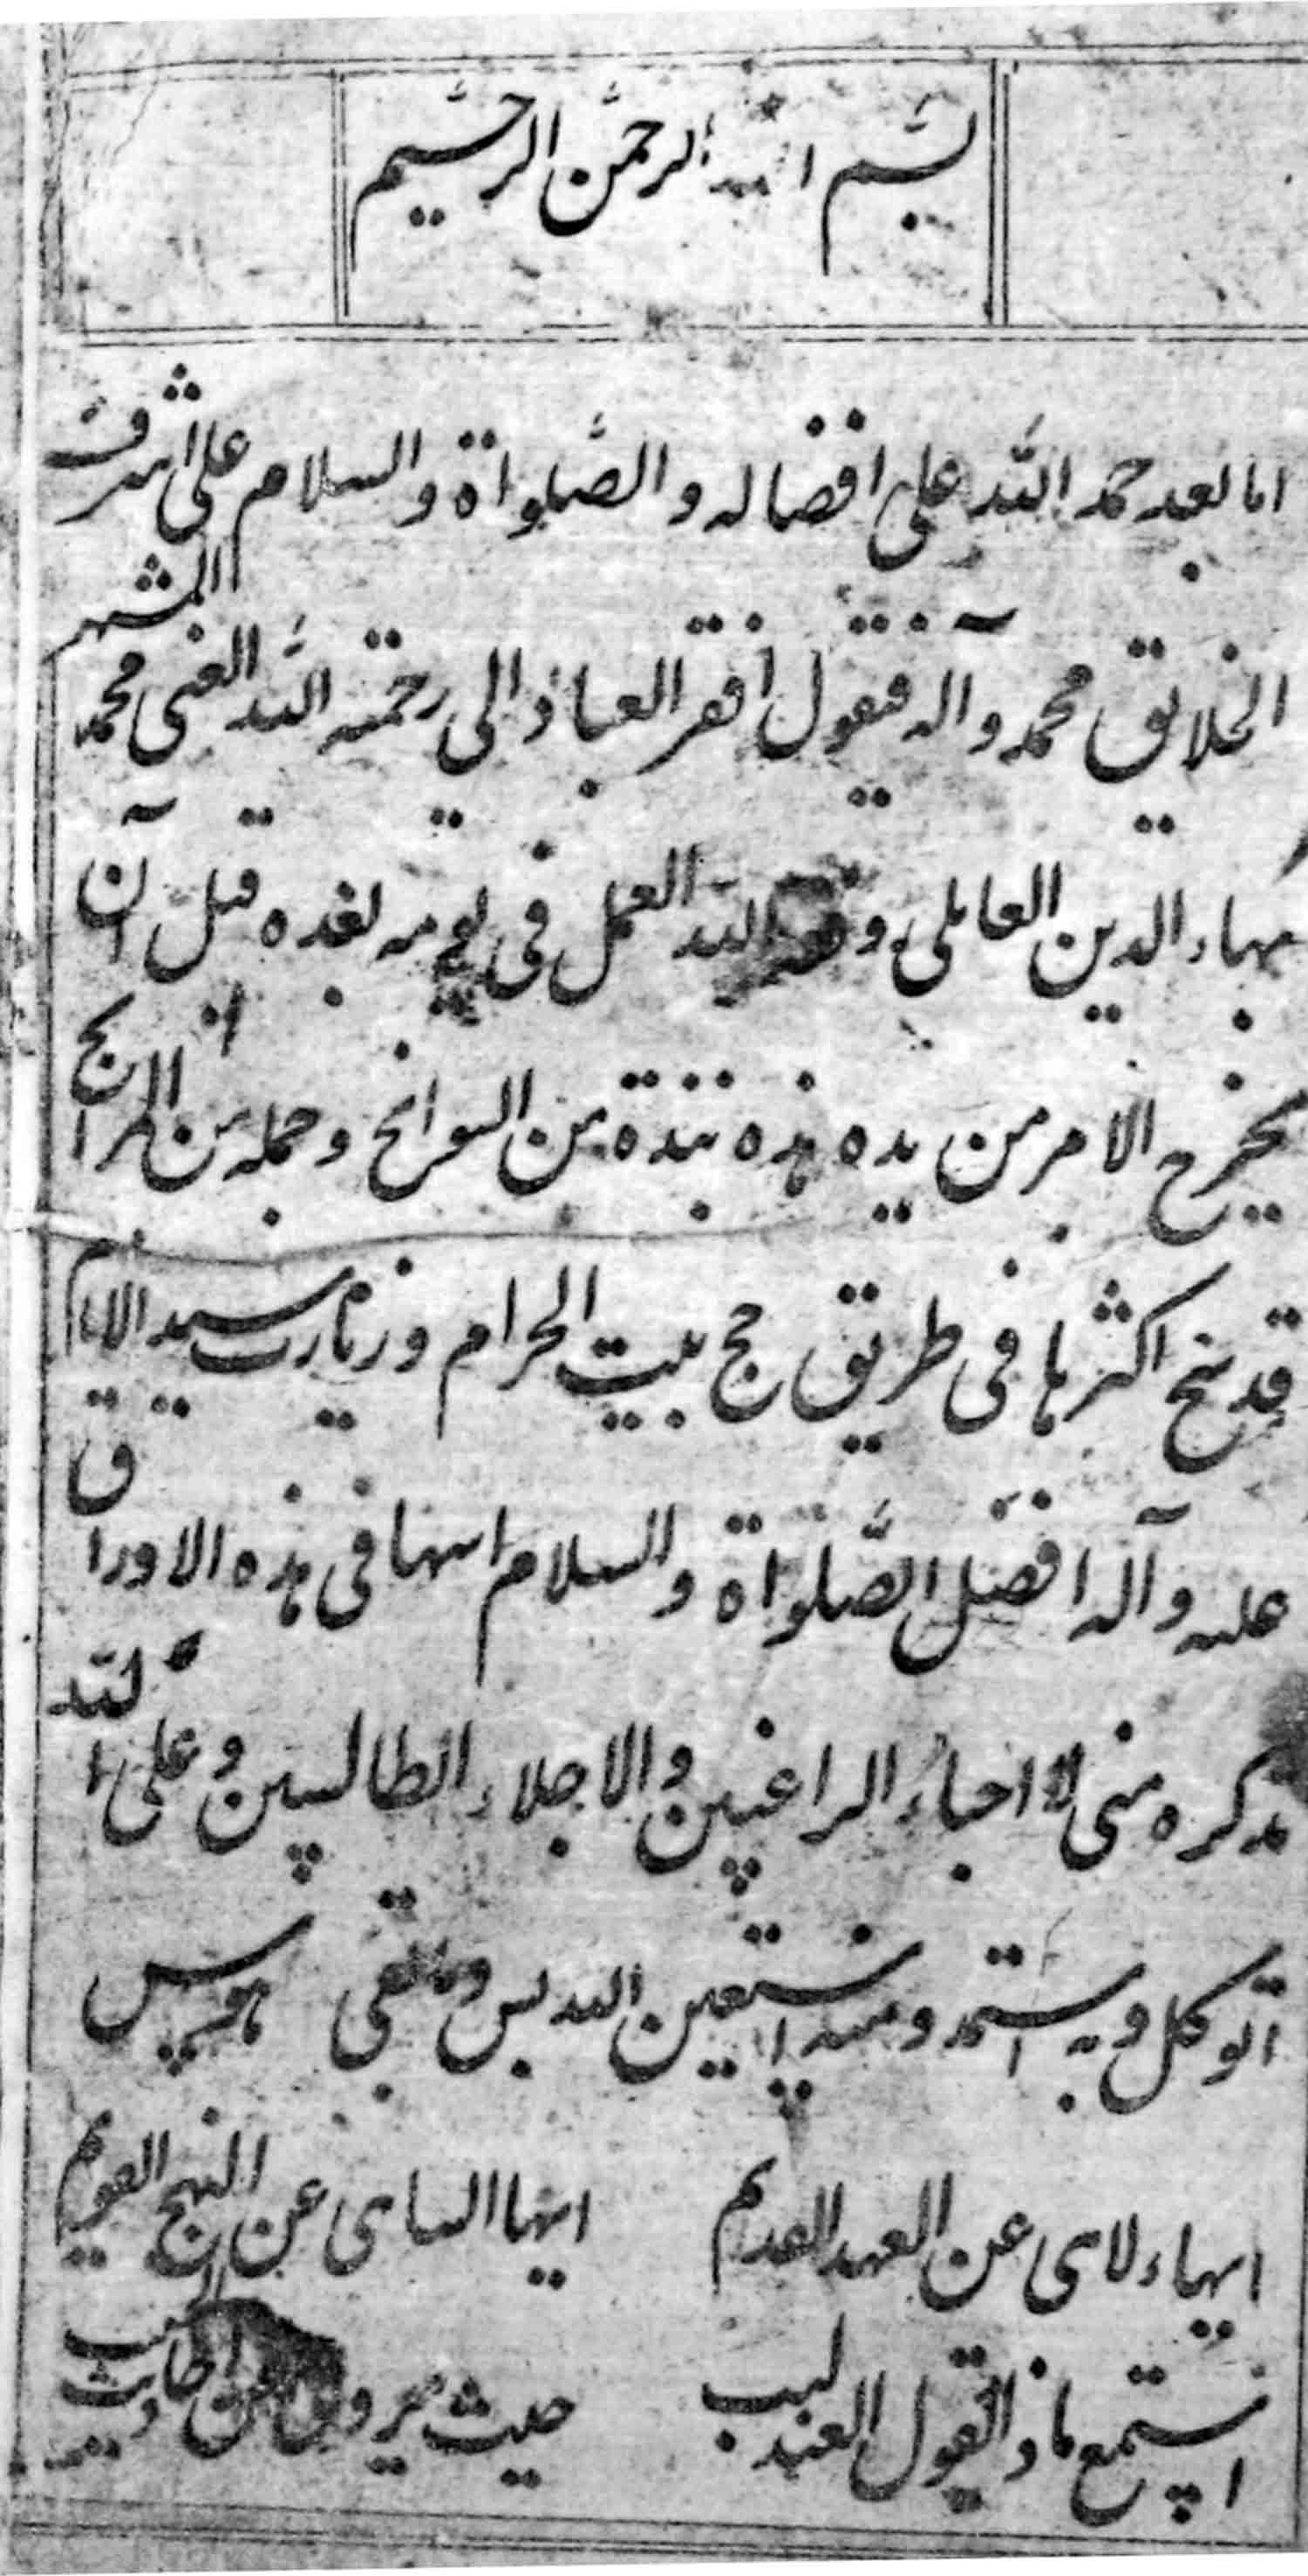 بسم الله الرحمن الرحیم
اما بعد حمد الله علی افضاله و الصلواة و السلام علی اشرف
الخلایق محمد و آله فیقول افقر العباد الی رحمة الله الغنی محمد المشتهر
بهاء الدین العاملی و الله العمل فی یومه لغده قبل آن
یخرج الامر من یده هذه نبذة من السوانح و جمله من
قد سنح اکثرها فی طریق حج بیت الحرام و زیارت سید الانام
علیه و آله افضل الصلواة و السلام اسها فی هذه الاوراق
تذکره منی لاا حباء الراغبین و الاجلاء الطالبین و علی الله
اتوکل و به استمد و منه استعین الله بس و مابقی هوس
ایهاء لاهی عن العهد القدیم ایها الساهی عن النهج القویم
استمع ماذا یقول العندلیب حیث یروی من احادیث الحبیب